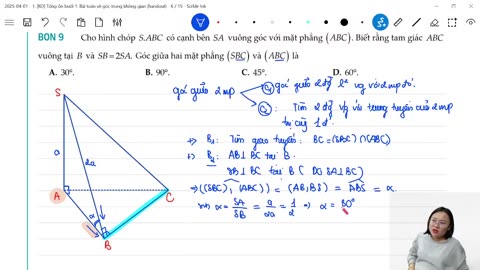 2025-04-01 - 1. [BO] Tổng ôn buổi 1. Bài toán về góc trong không gian (handout) 6 / 15 - SciMe Ink
BON 9 Cho hình chóp S.ABC có cạnh bên SA vuông góc với mặt phẳng (ABC). Biết rằng tam giác ABC
vuông tại B và SB = 2SA. Góc giữa hai mặt phẳng (SBC) và (ABC) là
A. 30°. B. 90°. C. 45°. D. 60°.
góc giữa 2 mp
C1 góc giữa 2 đg
C2 : Tìm 2 đg
tại cùng 1 đ.
→ B1: Tìm giao tuyến: BC = (SBC) ∩ (ABC)
→ B2: AB ⊥ BC tại B.
SB ⊥ BC tại B ( Do SA ⊥ BC)
→ ((SBC), (ABC)) = (AB; BS) = ABS = α.
sin α = SA/SB = a/2a = 1/2 → α = 30°
S
a
2a
A
α
C
B